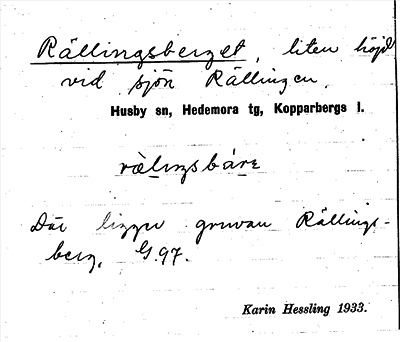 Rällingsberget, liten höjd
vid sjön Rällingen.
Husby sn, Hedemora tg, Kopparbergs l.
rälıŋsbárɛ
Där ligger gruvan Rällings-
berg, G.97.
Karin Hessling 1933.